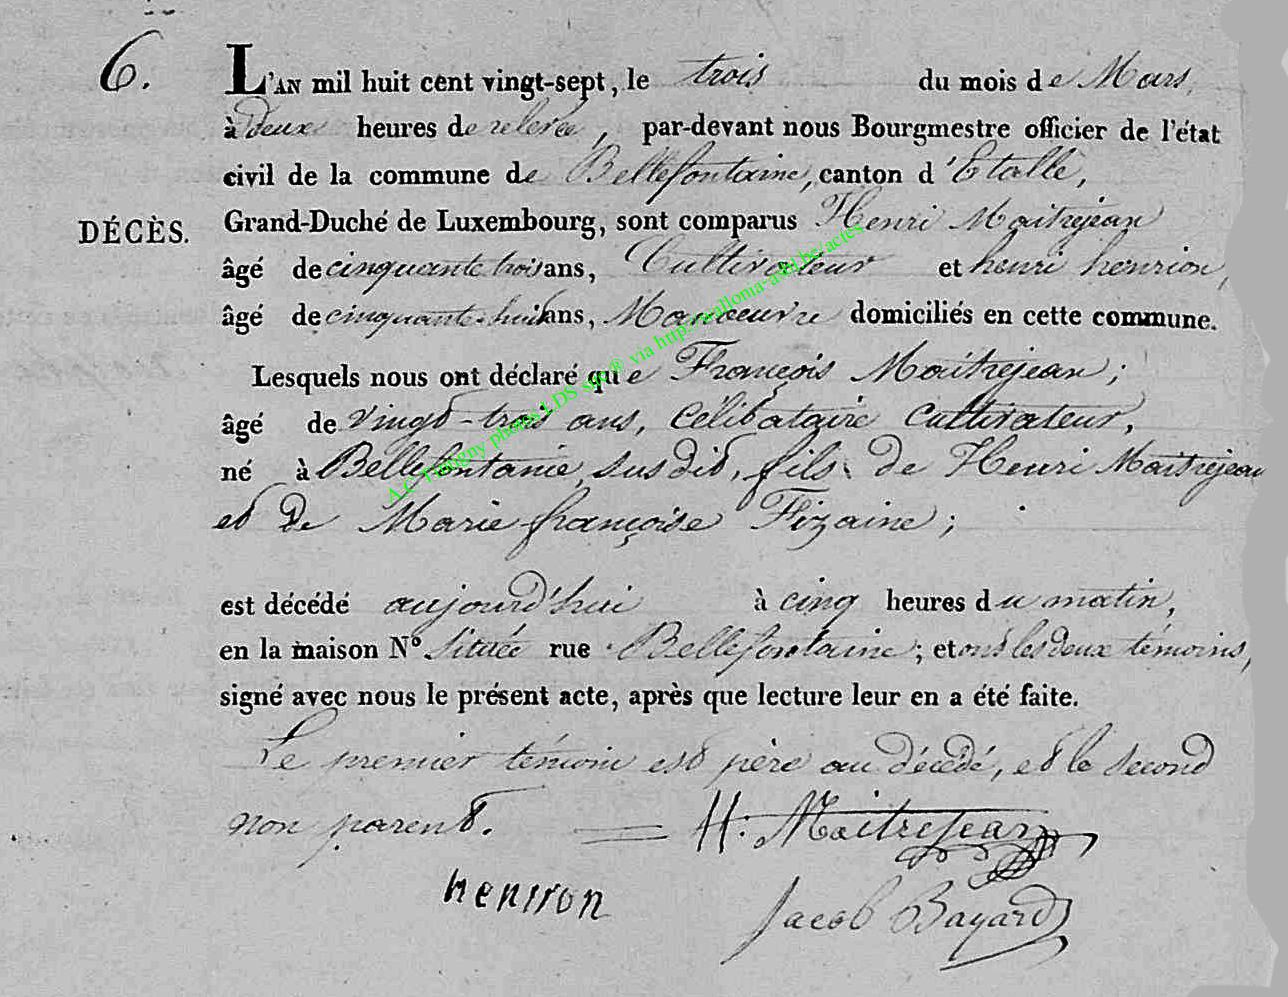 6.
L'AN mil huit cent vingt-sept, le trois du mois de Mars,
à deux heures de relevée, par-devant nous Bourgmestre officier de l'état
civil de la commune de Bellefontaine, canton d'Etalle,
DÉCÈS.
Grand-Duché de Luxembourg, sont comparus Henri Maitrejean
âgé de cinquante trois ans, Cultivateur et henri henrion,
âgé de cinquante-huit ans, Manoeuvre domiciliés en cette commune.
Lesquels nous ont déclaré que François Maitrejean;
âgé de vingt-trois ans, Célibataire Cultivateur,
né à Bellefontaine, susdit, fils de Henri Maitrejean
et de Marie françoise Fizaine;
est décédé aujourd'hui à cinq heures du matin,
en la maison N° Située rue Bellefontaine; et ont les deux témoins,
signé avec nous le présent acte, après que lecture leur en a été faite.
Le premier témoin est père au décédé, et le second
non parent.
H. Maitrejean
henrion
Jacob Bayard
via http://walloma-avbl.be/actes